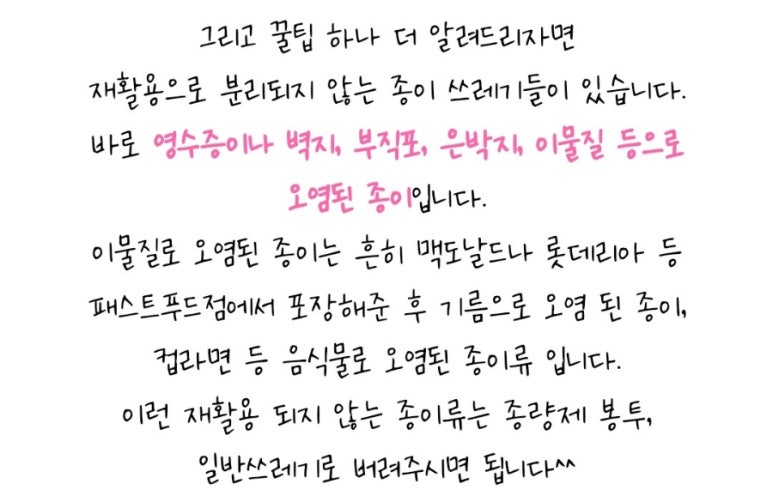 그리고 꿀팁 하나 더 알려드리자면
재활용으로 분리되지 않는 종이 쓰레기들이 있습니다.
바로 영수증이나 벽지, 부직포, 은박지, 이물질 등으로
오염된 종이입니다.
이물질로 오염된 종이는 흔히 맥도날드나 롯데리아 등
패스트푸드점에서 포장해준 후 기름으로 오염 된 종이,
컵라면 등 음식물로 오염된 종이류 입니다.
이런 재활용 되지 않는 종이류는 종량제 봉투,
일반쓰레기로 버려주시면 됩니다^^